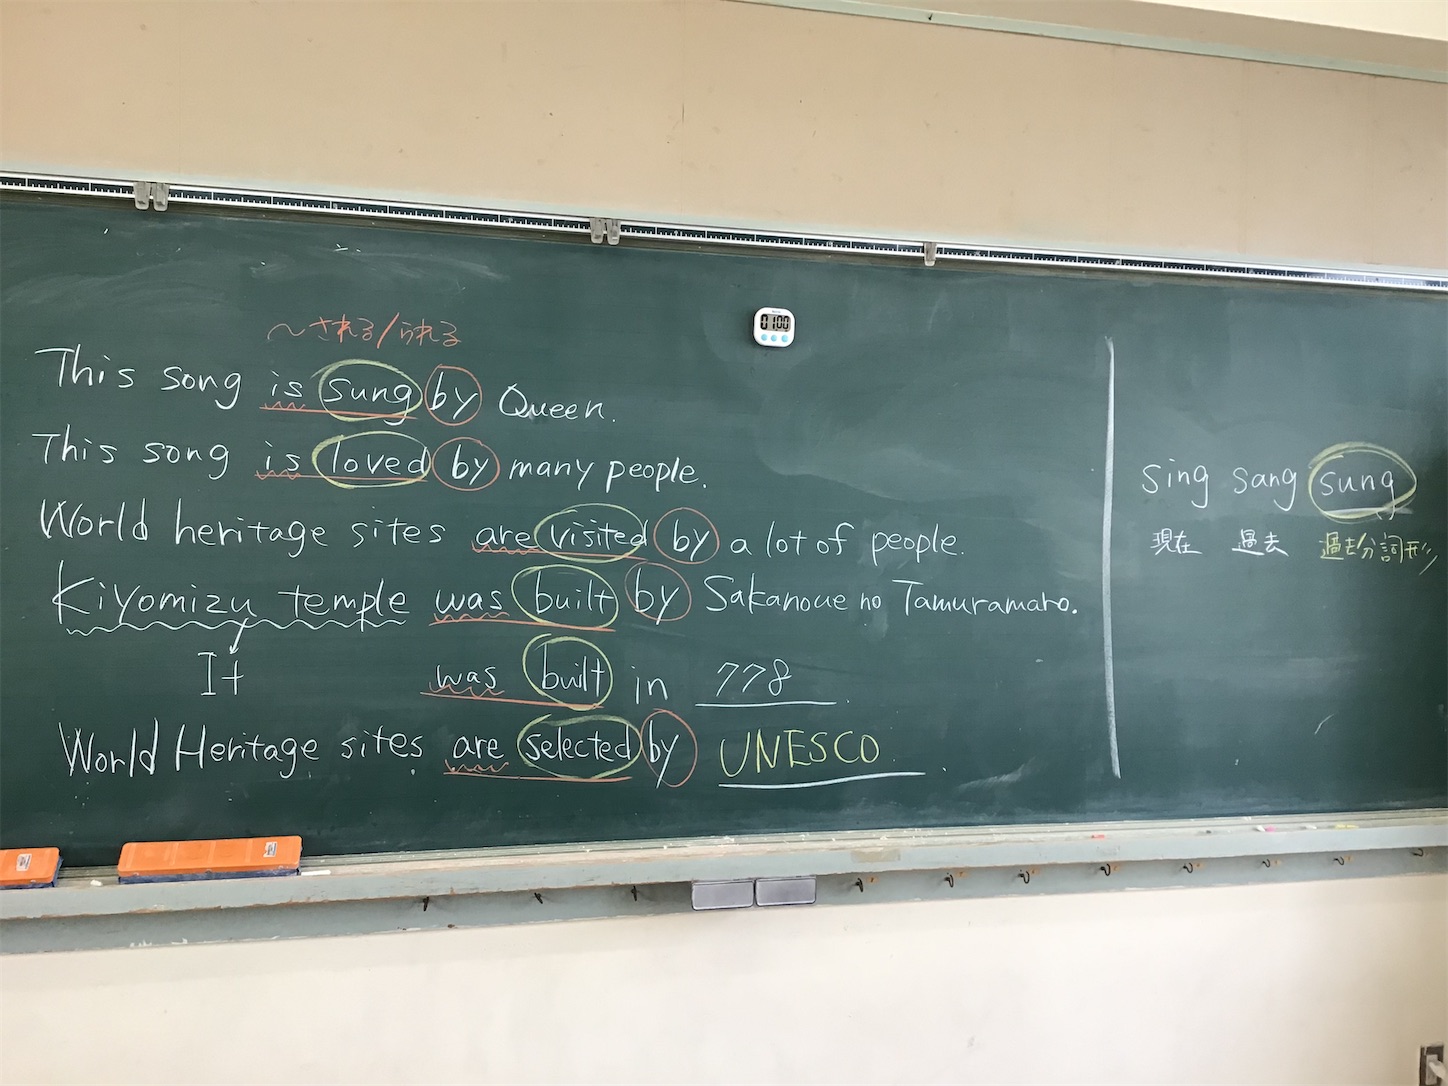 〜される/られる
This song is sung by Queen.
This song is loved by many people.
World heritage sites are visited by a lot of people.
Kiyomizu temple was built by Sakanoue no Tamuramaro.
It was built in 778.
World Heritage sites are selected by UNESCO.
sing sang sung
現在 過去 過去分詞形
01:00